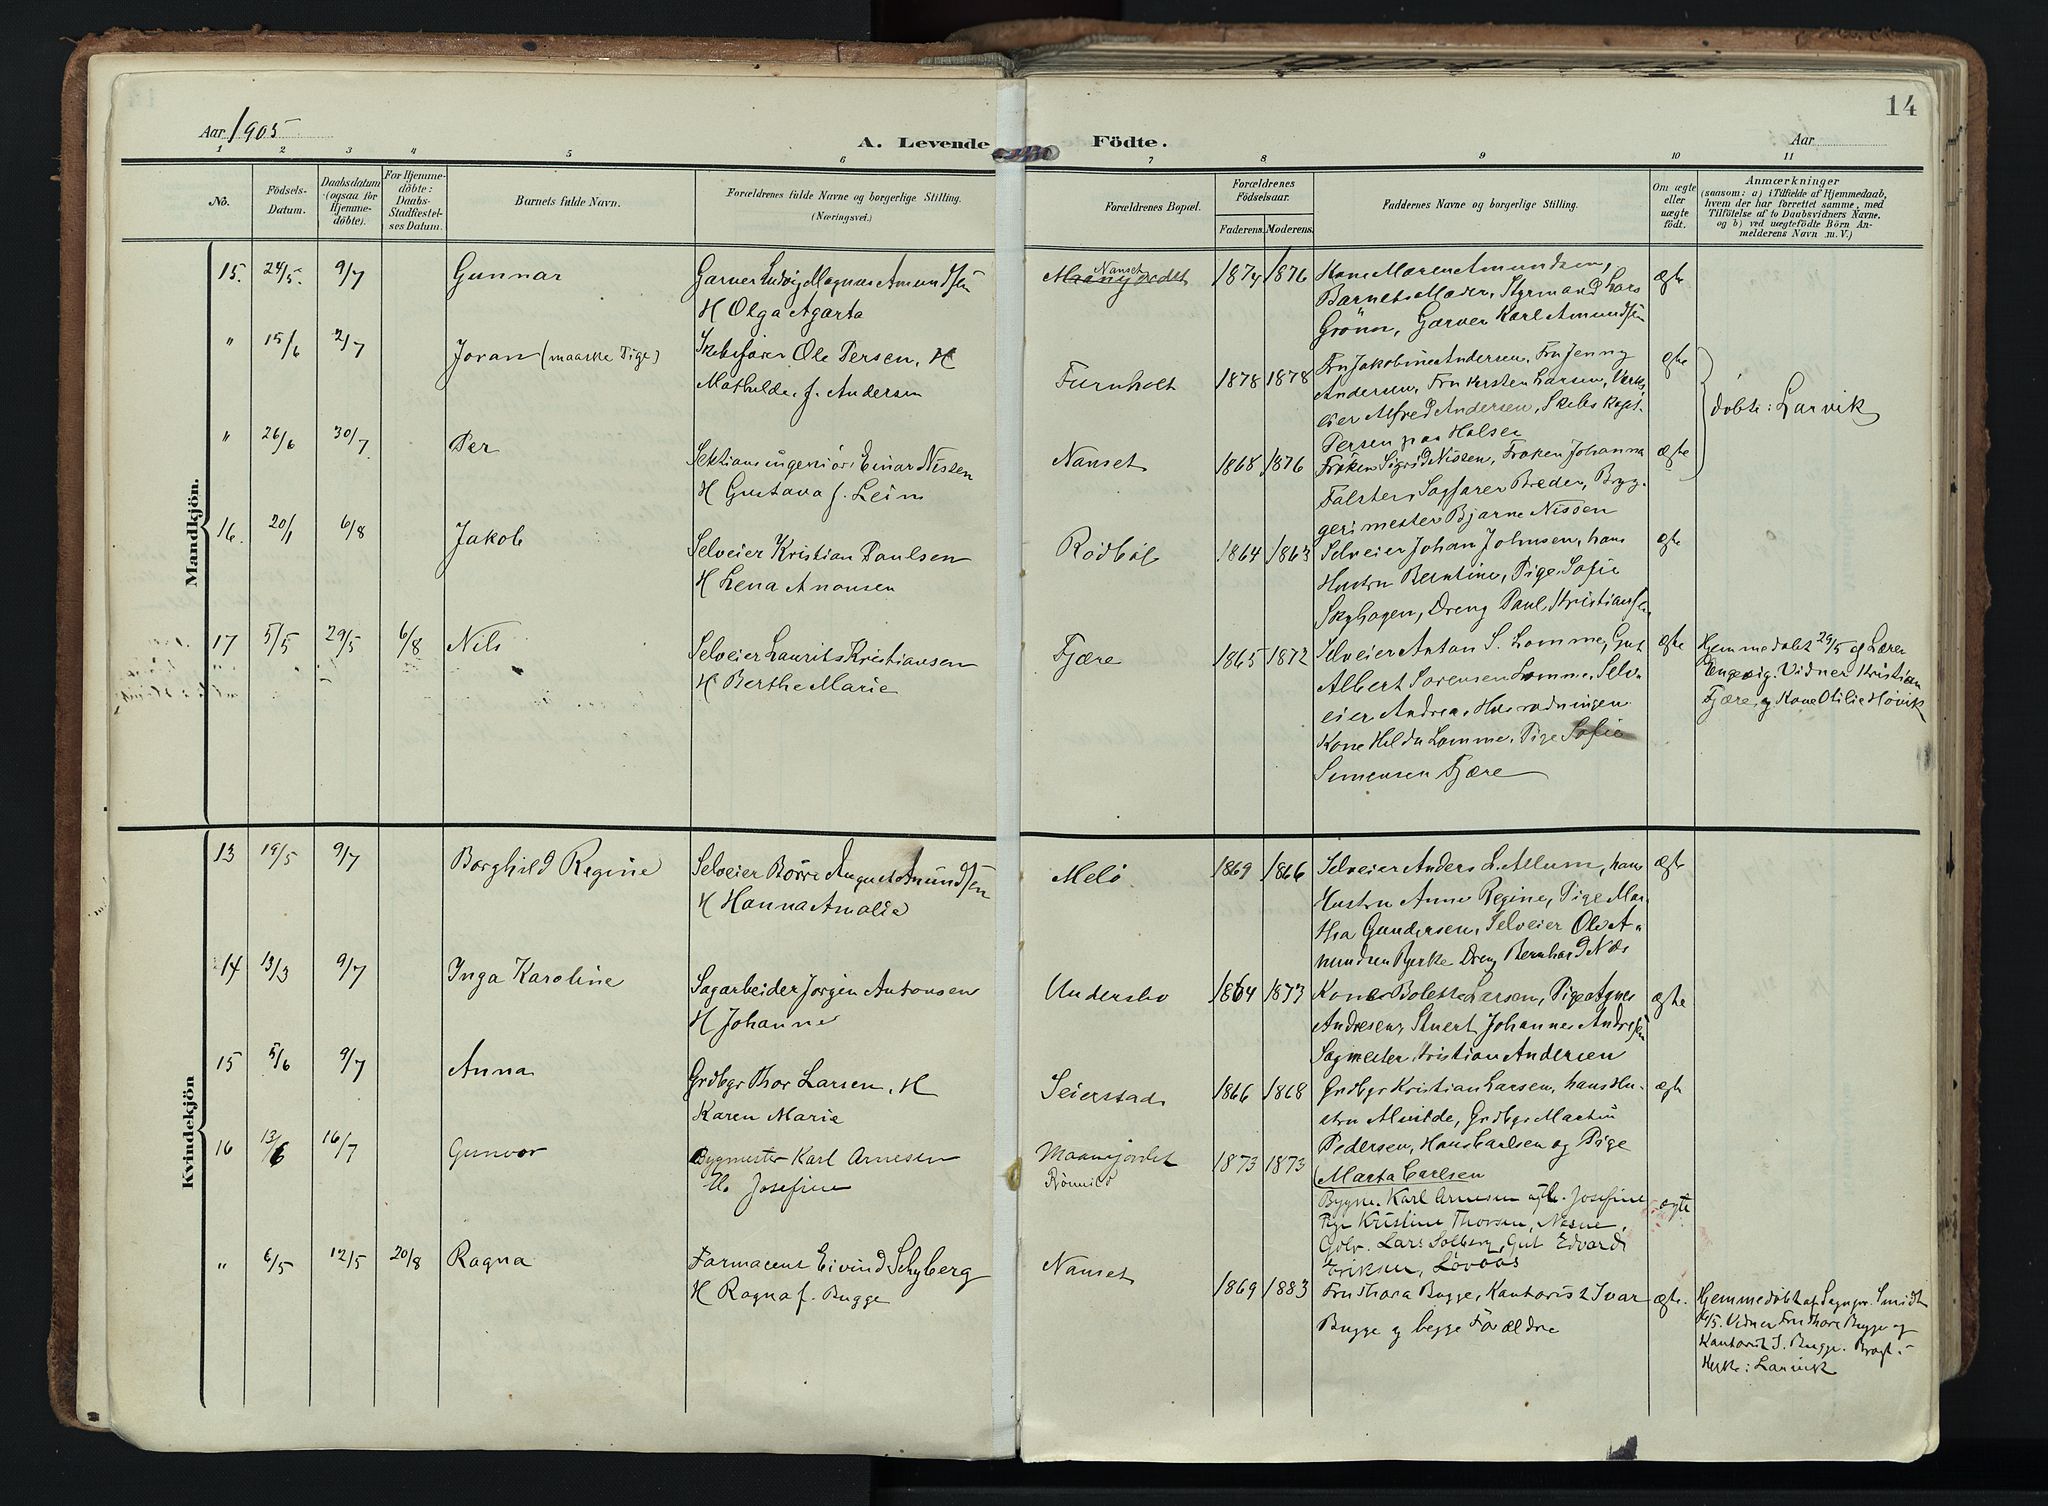 14
Aar 1905
A. Levende Födte.
Aar
1 2 3 4 5 6 7 8 9 10 11
No.
Födsels-Datum.
Daabsdatum (ogsaa for Hjemmedöbte).
For Hjemmedöbte: Daabs-Stadfestelses Datum.
Barnets fulde Navn.
Forældrenes fulde Navne og borgerlige Stilling. (Næringsvei.)
Forældrenes Bopæl.
Forældrenes Födselsaar.
Faderens. Moderens.
Faddernes Navne og borgerlige Stilling.
Om ægte eller uægte födt.
Anmærkninger
(saasom: a) i Tilfælde af Hjemmedaab,
hvem der har forrettet samme, med
Tilföielse af to Daabsvidners Navne.
og b) ved uægtefödte Börn An-
melderens Navn m. V.)
Mandkjön.
15. 24/5. 9/7 Gunnar
Garver Ludvig Magnus Amundsen
H Olga Agarta
Nanset
1874 1876
Kone Maren Amundsen,
Barnets Moder, Styrmand Lars
Grönn, Garver Karl Amundsen
ægte
" 15/6 2/7 Joran (maaske Pige)
Skibsfører Ole Persen, H
Mathilde, f. Andersen
Furuholt
1878 1878
Fru Jakobine Andersen, Fru Jenny
Andersen, Fru Kirsten Larsen, Værks
eier Alfred Andersen, Skibskapt.
Persen paa Halsen
ægte
döbte: Larvik
" 26/6 30/7 Per
Sektionsingeniör Einar Nissen
H Gustava f. Leim
Nanset
1868 1876
Frøken Sigrid Nissen, Frøken Johanna
Falster, Sagförer Breder, Bryg-
gerimester Bjarne Nissen
ægte
16. 20/1 6/8 Jakob
Selveier Kristian Paulsen
H Lena Anonsen
Rödböl
1864 1863
Selveier Johan Johnsen, hans
Hustru Berntine, Pige Sofie
Skyhagen, Dreng Paul Kristiansen
ægte
17 5/5 29/5 6/8 Nils
Selveier Laurits Kristiansen
H Berthe Marie
Fjære
1865 1872
Selveier Anton S. Lomme, Gut
Albert Sörensen Lomme, Selv-
eier Andrea
Kone Hilda Lomme, Pige Sofie
Simensen Fjære
ægte
Hjemmedöbt 29/5 af Lærer
Engevig. Vidner Kristian
Fjære og Kone Otilie Hövik
Kvindekjön
13 19/5 9/7 Borghild Regine
Selveier Börre August Anundsen
H Hanna Amalie
Melö
1869 1866
Selveier Anders L. Allum, hans
Hustru Anne Regine, Pige Mar-
tha Gundersen, Selveier Olv A-
nundsen Bjerke Dreng Bernhard Næs
ægte
14 13/3 9/7 Inga Karoline
Sagarbeider Jörgen Antonsen
H Johanne
Undersbo
1864 1873
Kone Bolette Larsen, Pige Agnes
Andresen, Stuert Johannes Andresen
Sagmester Kristian Andersen
ægte
15 5/6 9/7 Anna
Grdbgr Thor Larsen, H
Karen Marie
Seierstad
1866 1868
Grdbgr Kristian Larsen, hans Hu-
stru Alvilde, Grdbgr Martin
Pedersen, Hans Carlsen og Pige
Marta Carlsen
ægte
16 13/6 16/7 Gunvor
Bygmester Karl Arnesen
H. Josefine
Maanejordet
1873 1873
Bygm. Karl Arnesen og H. Josefine
Pige Kristine Thorsen, Nesne,
Gdbr. Lars Solberg, Gut Edvard
Eriksen, Lövaas
ægte
" 6/5 12/5 20/8 Ragna
Farmaceut Eivind Schyberg
H Ragna f. Bugge
Nanset
1869 1883
Fru Thora Bugge, Kontorist Ivar
Bugge og begge Forældre
ægte.
Hjemmedöbt af Sognpr. Smidt
Vidner Fru Thora Bugge og
Kontorist I. Bugge. Bragt i
Kirke: Larvik